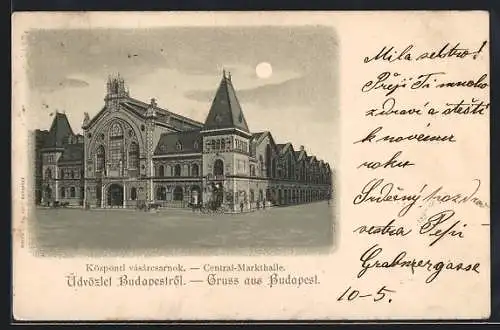 Központi vásárcsarnok. — Central-Markthalle.
Üdvözlet Budapestről. — Gruss aus Budapest.
Milá sestro!
Přeji Ti mnoho
zdraví a štěstí
k novému
roku
Srdečný pozdrav
Pepi
Grabnergasse
10-5.